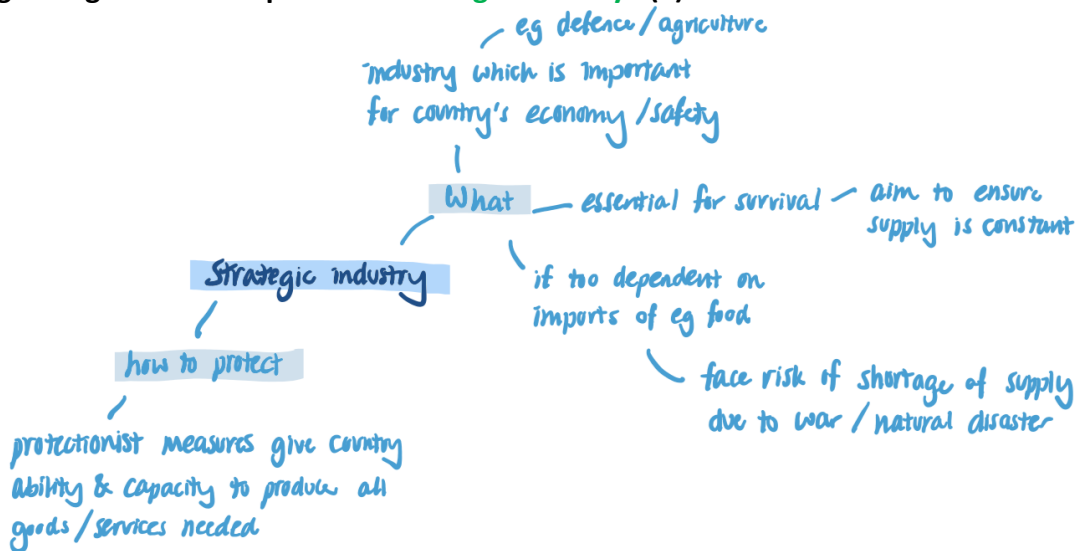 eg defence/agriculture
industry which is important
for country's economy/safety
What
essential for survival
aim to ensure
supply is constant
Strategic industry
if too dependent on
imports of eg food
how to protect
face risk of shortage of supply
due to war/natural disaster
protectionist measures give country
ability & capacity to produce all
goods/services needed